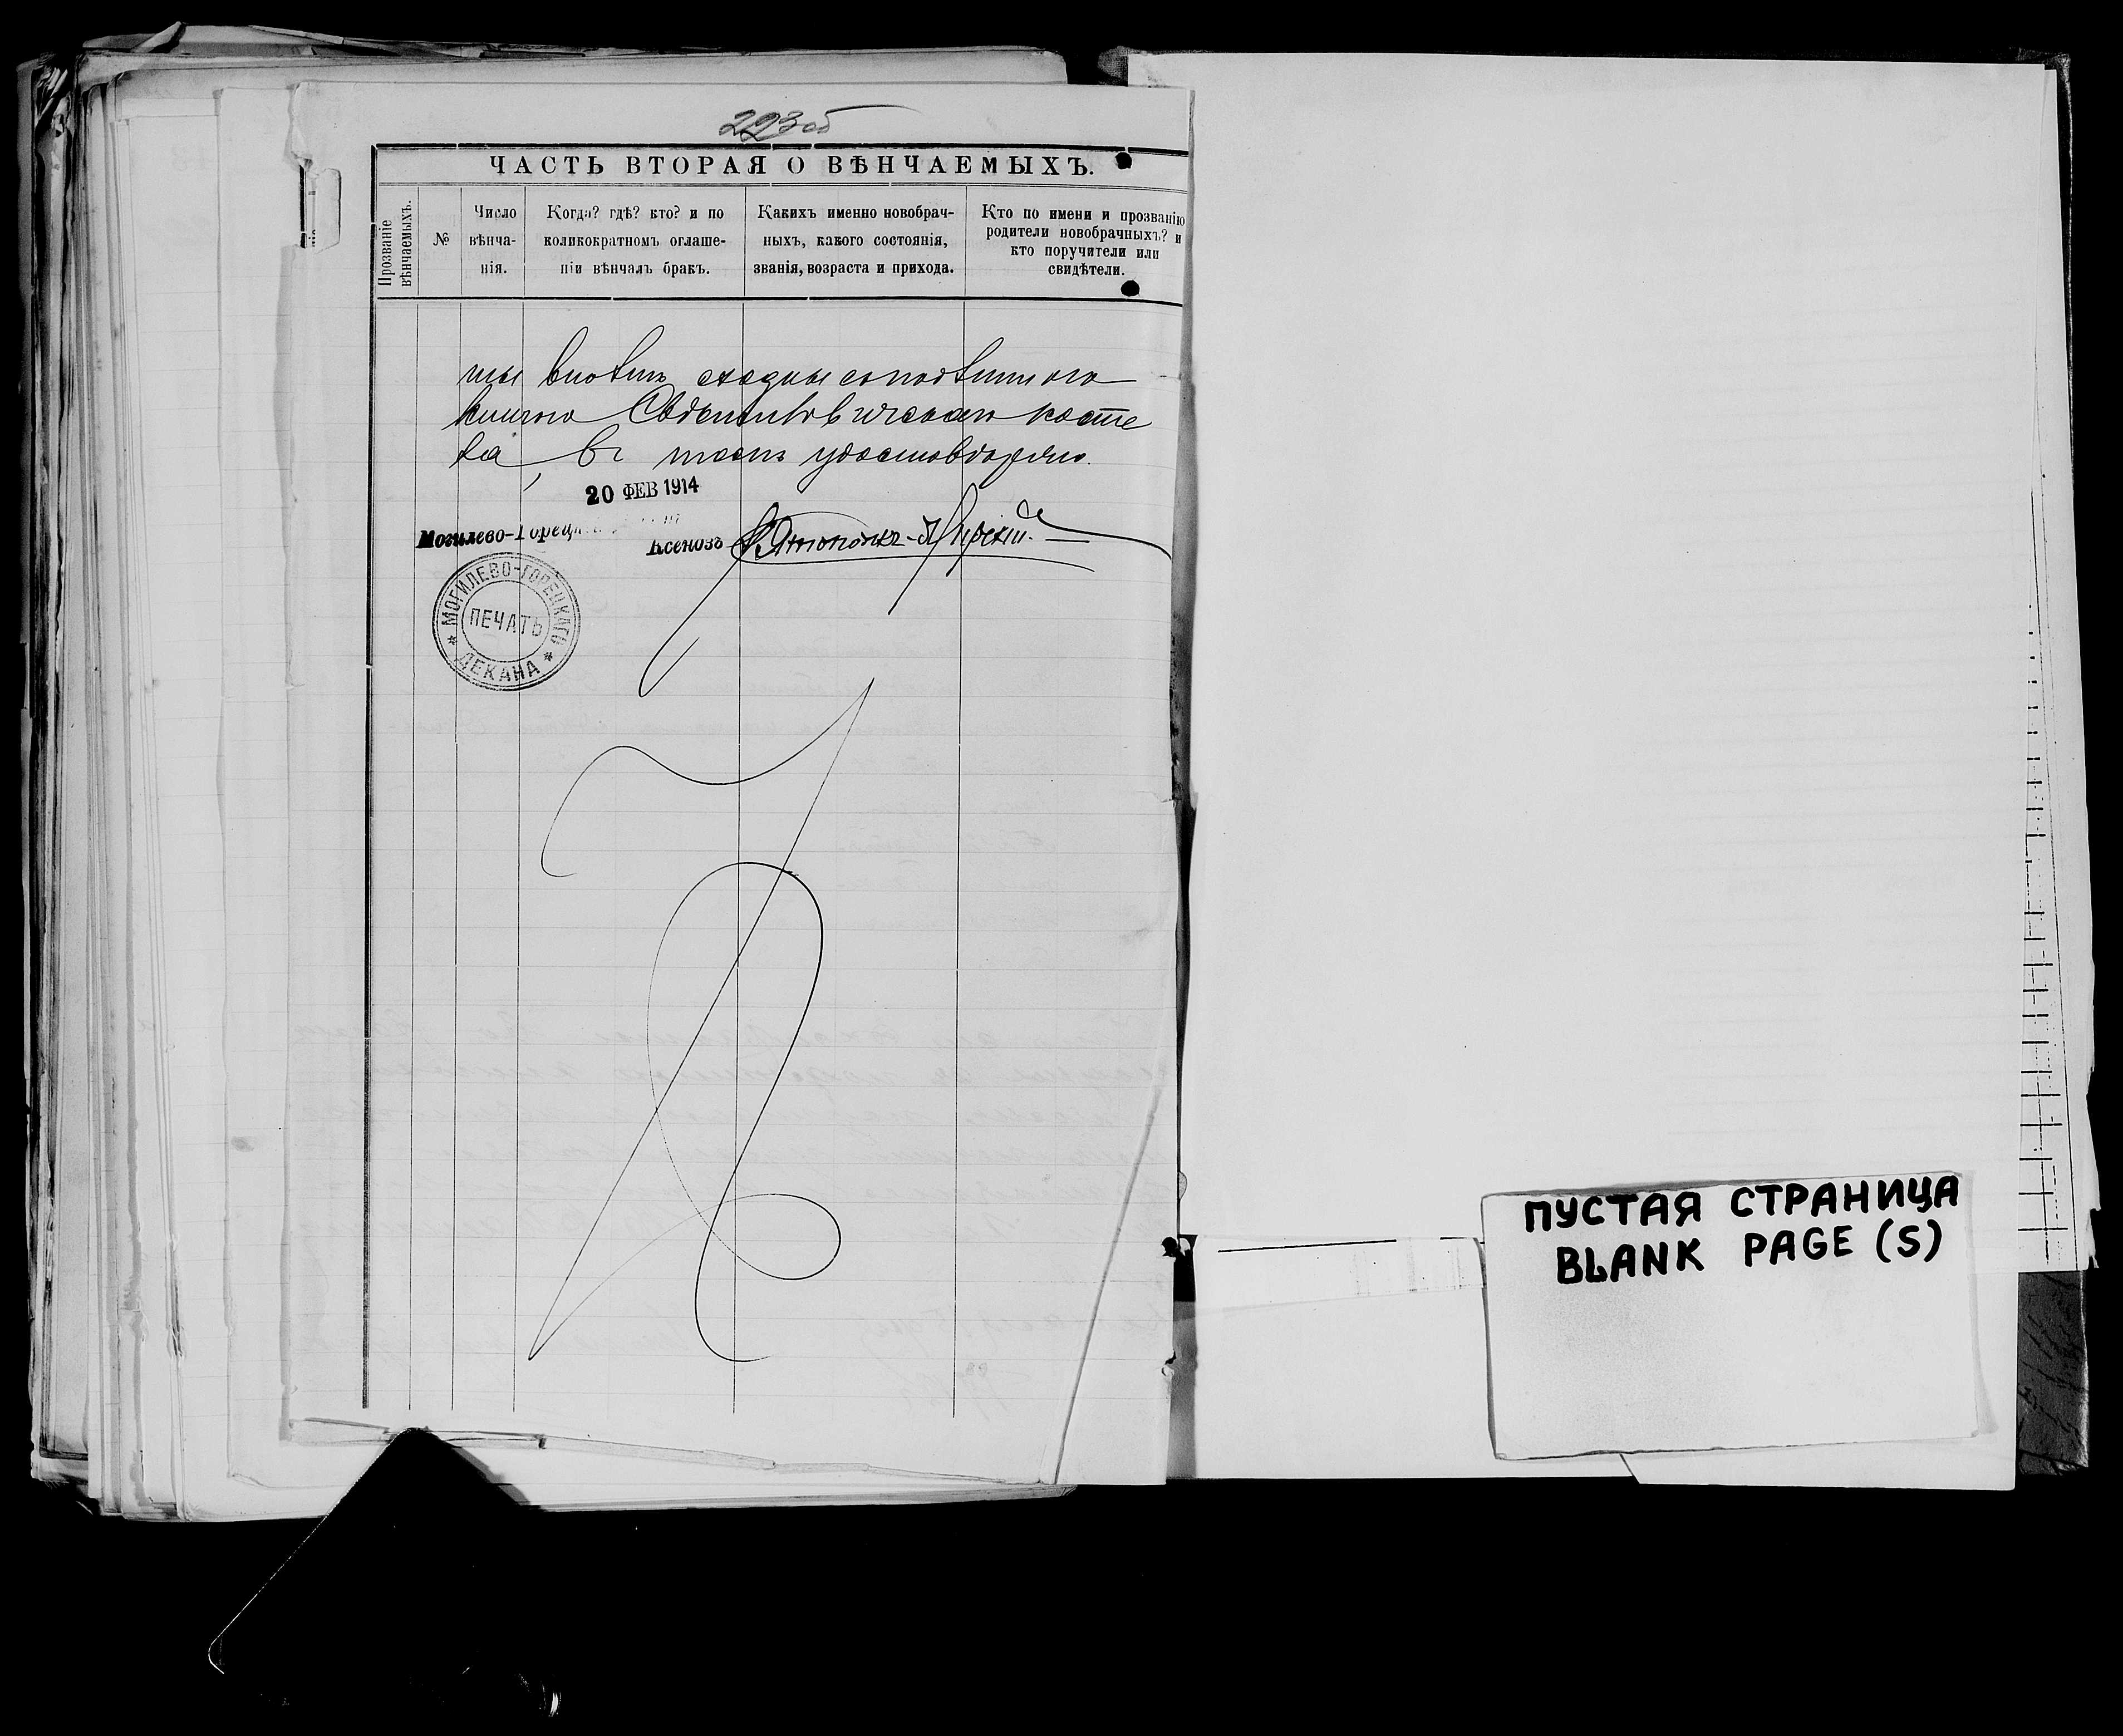 223 об
ЧАСТЬ ВТОРАЯ О ВѢНЧАЕМЫХЪ.
Прозваніе вѣнчаемыхъ.
№
Число вѣнча-
нія.
Когда? гдѣ? кто? и по
коликократномъ оглаше-
ніи вѣнчалъ бракъ.
Какихъ именно новобрач-
ныхъ, какого состоянія,
званія, возраста и прихода.
Кто по имени и прозванію
родители новобрачныхъ? и
кто поручители или
свидѣтели.
сходны
косте
ла, въ томъ удостовѣряю.
20 ФЕВ 1914
Могилево-Горецк
Ксенозъ
МОГИЛЕВО-ГОРЕЦКАГО
ПЕЧАТЬ
ДЕКАНА
ПУСТАЯ СТРАНИЦА
BLANK PAGE (S)